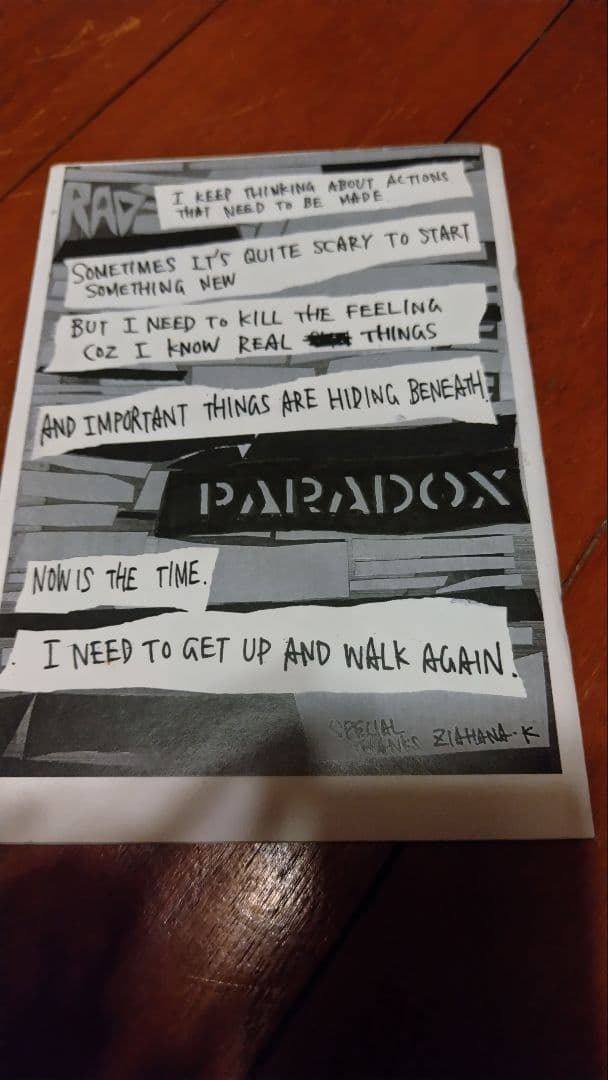 RAD
I KEEP THINKING ABOUT ACTIONS
THAT NEED TO BE MADE.
SOMETIMES IT'S QUITE SCARY TO START
SOMETHING NEW
BUT I NEED TO KILL THE FEELING
COZ I KNOW REAL THINGS
AND IMPORTANT THINGS ARE HIDING BENEATH.
PARADOX
NOW IS THE TIME.
. I NEED TO GET UP AND WALK AGAIN.
SPECIAL
THANKS ZIAHANA-K